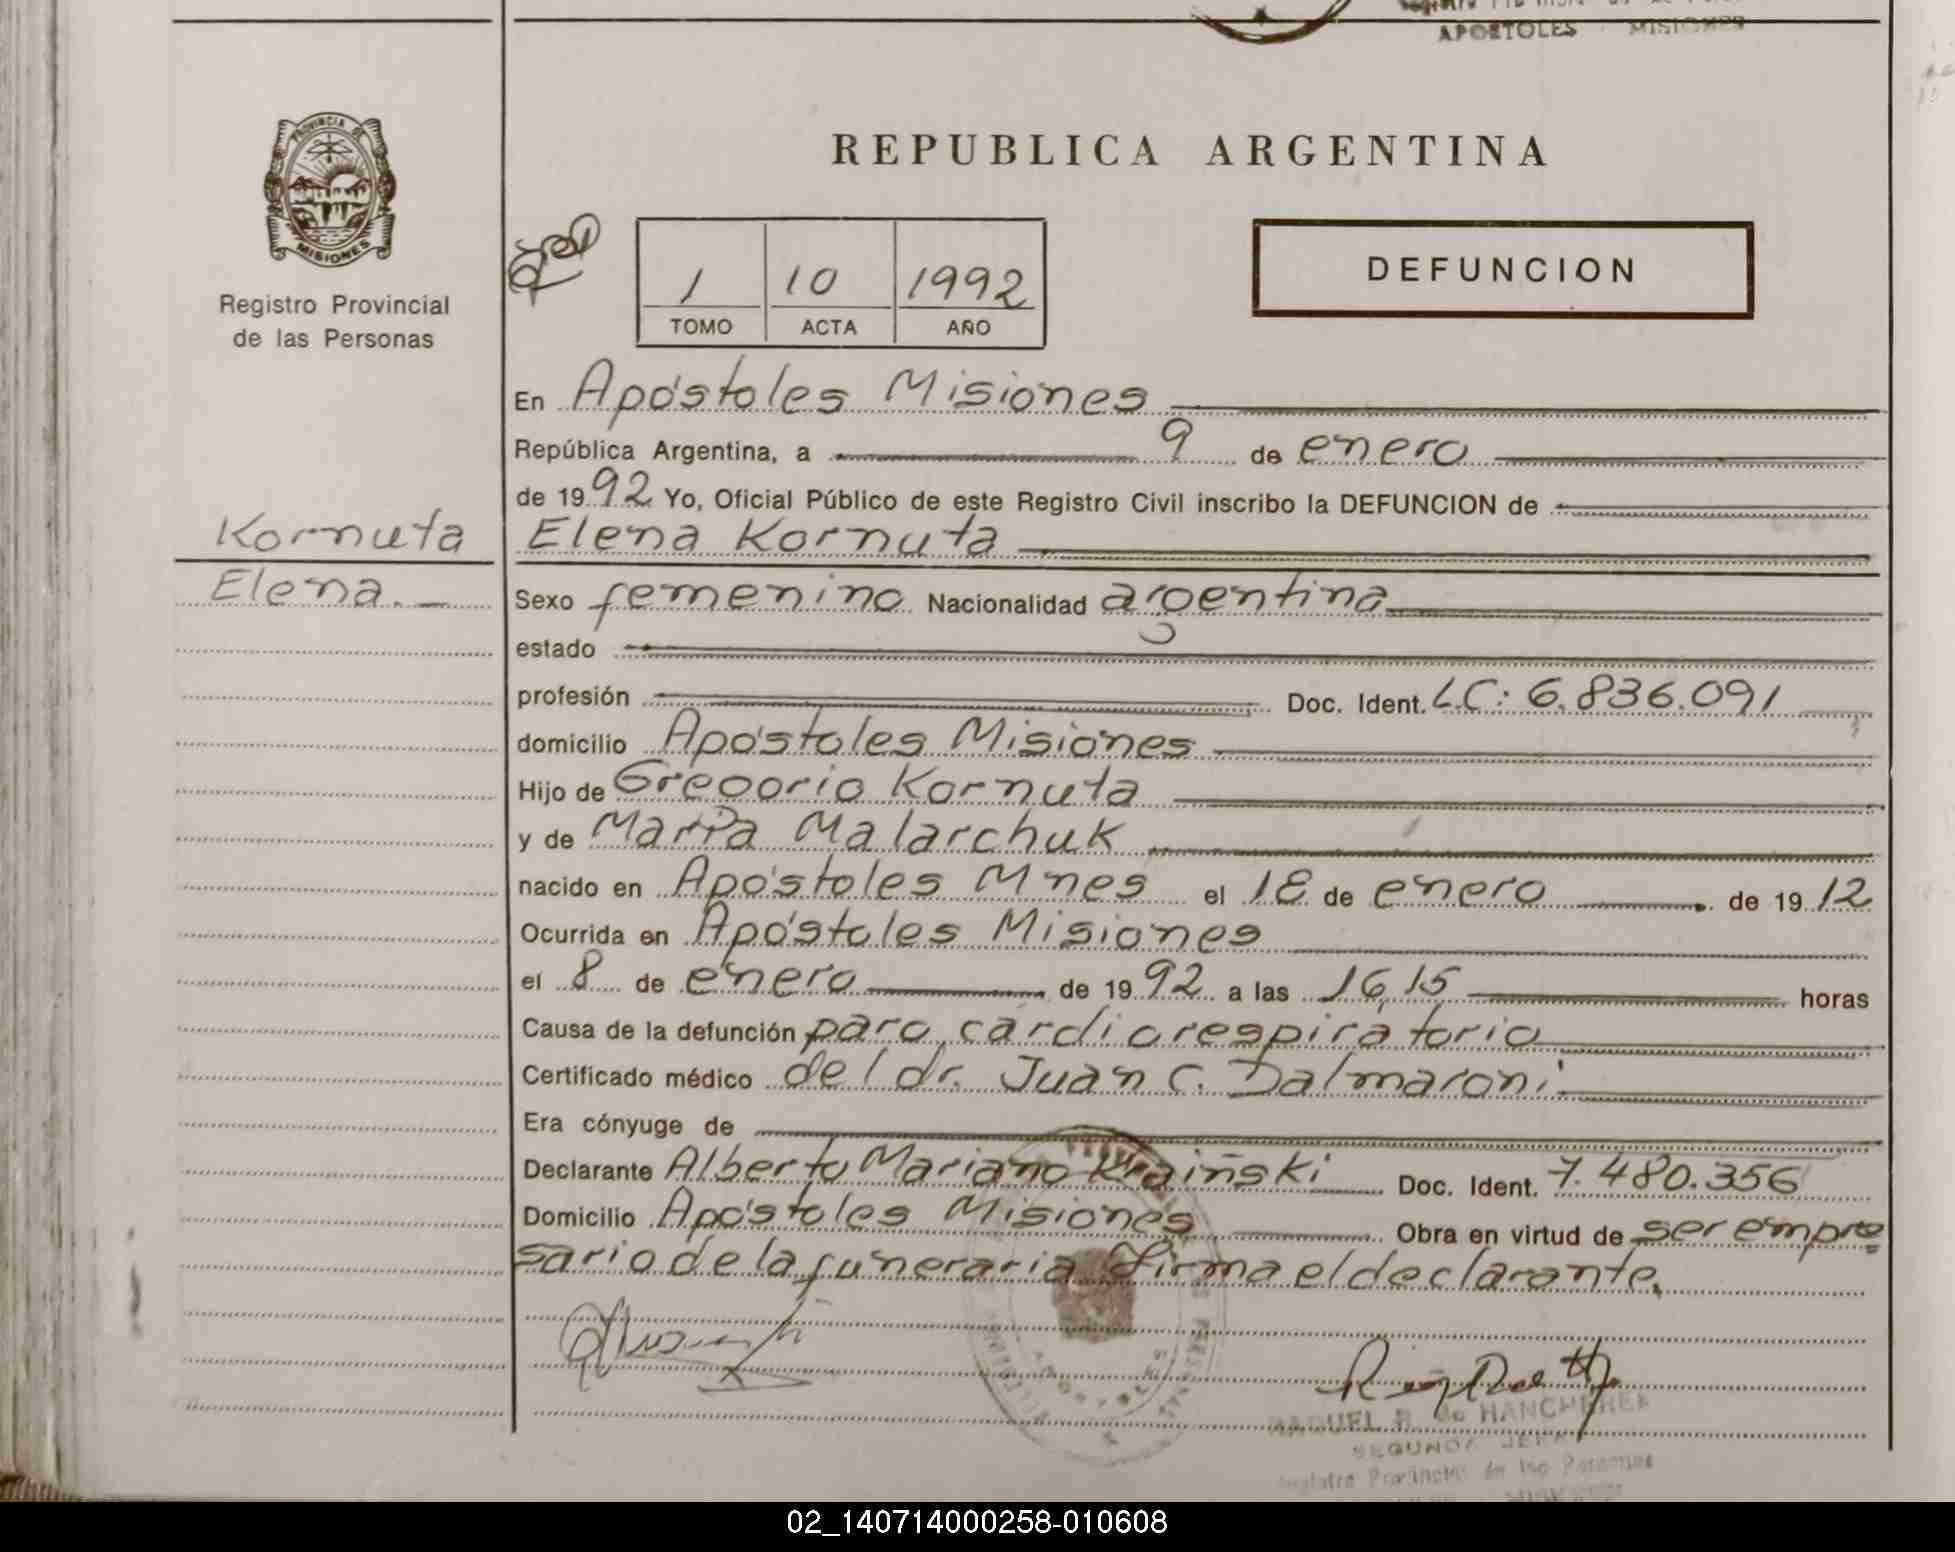 APOSTOLES MISIONES
PROVINCIA DE
MISIONES
Registro Provincial
de las Personas
REPUBLICA ARGENTINA
1 10 1992
TOMO ACTA AÑO
DEFUNCION
En Apóstoles Misiones
República Argentina, a 9 de enero
de 1992 Yo, Oficial Público de este Registro Civil inscribo la DEFUNCION de
Kornuta
Elena.
Elena Kornuta
Sexo femenino Nacionalidad argentina
estado
profesión Doc. Ident. LC: 6.836.091
domicilio Apóstoles Misiones
Hijo de Gregorio Kornuta
y de María Malarchuk
nacido en Apóstoles Mnes el 18 de enero de 1912
Ocurrida en Apóstoles Misiones
el 8 de enero de 1992 a las 16,15 horas
Causa de la defunción paro cardiorespiratorio
Certificado médico del dr. Juan C. Dalmaroni
Era cónyuge de
Declarante Alberto Mariano Kraiński Doc. Ident. 7.480.356
Domicilio Apóstoles Misiones Obra en virtud de ser empre=
sario de la funeraria Firma el declarante.
RAQUEL R. de HANCHEREK
SEGUNDA
Registro Provincial de las Personas
02_140714000258-010608